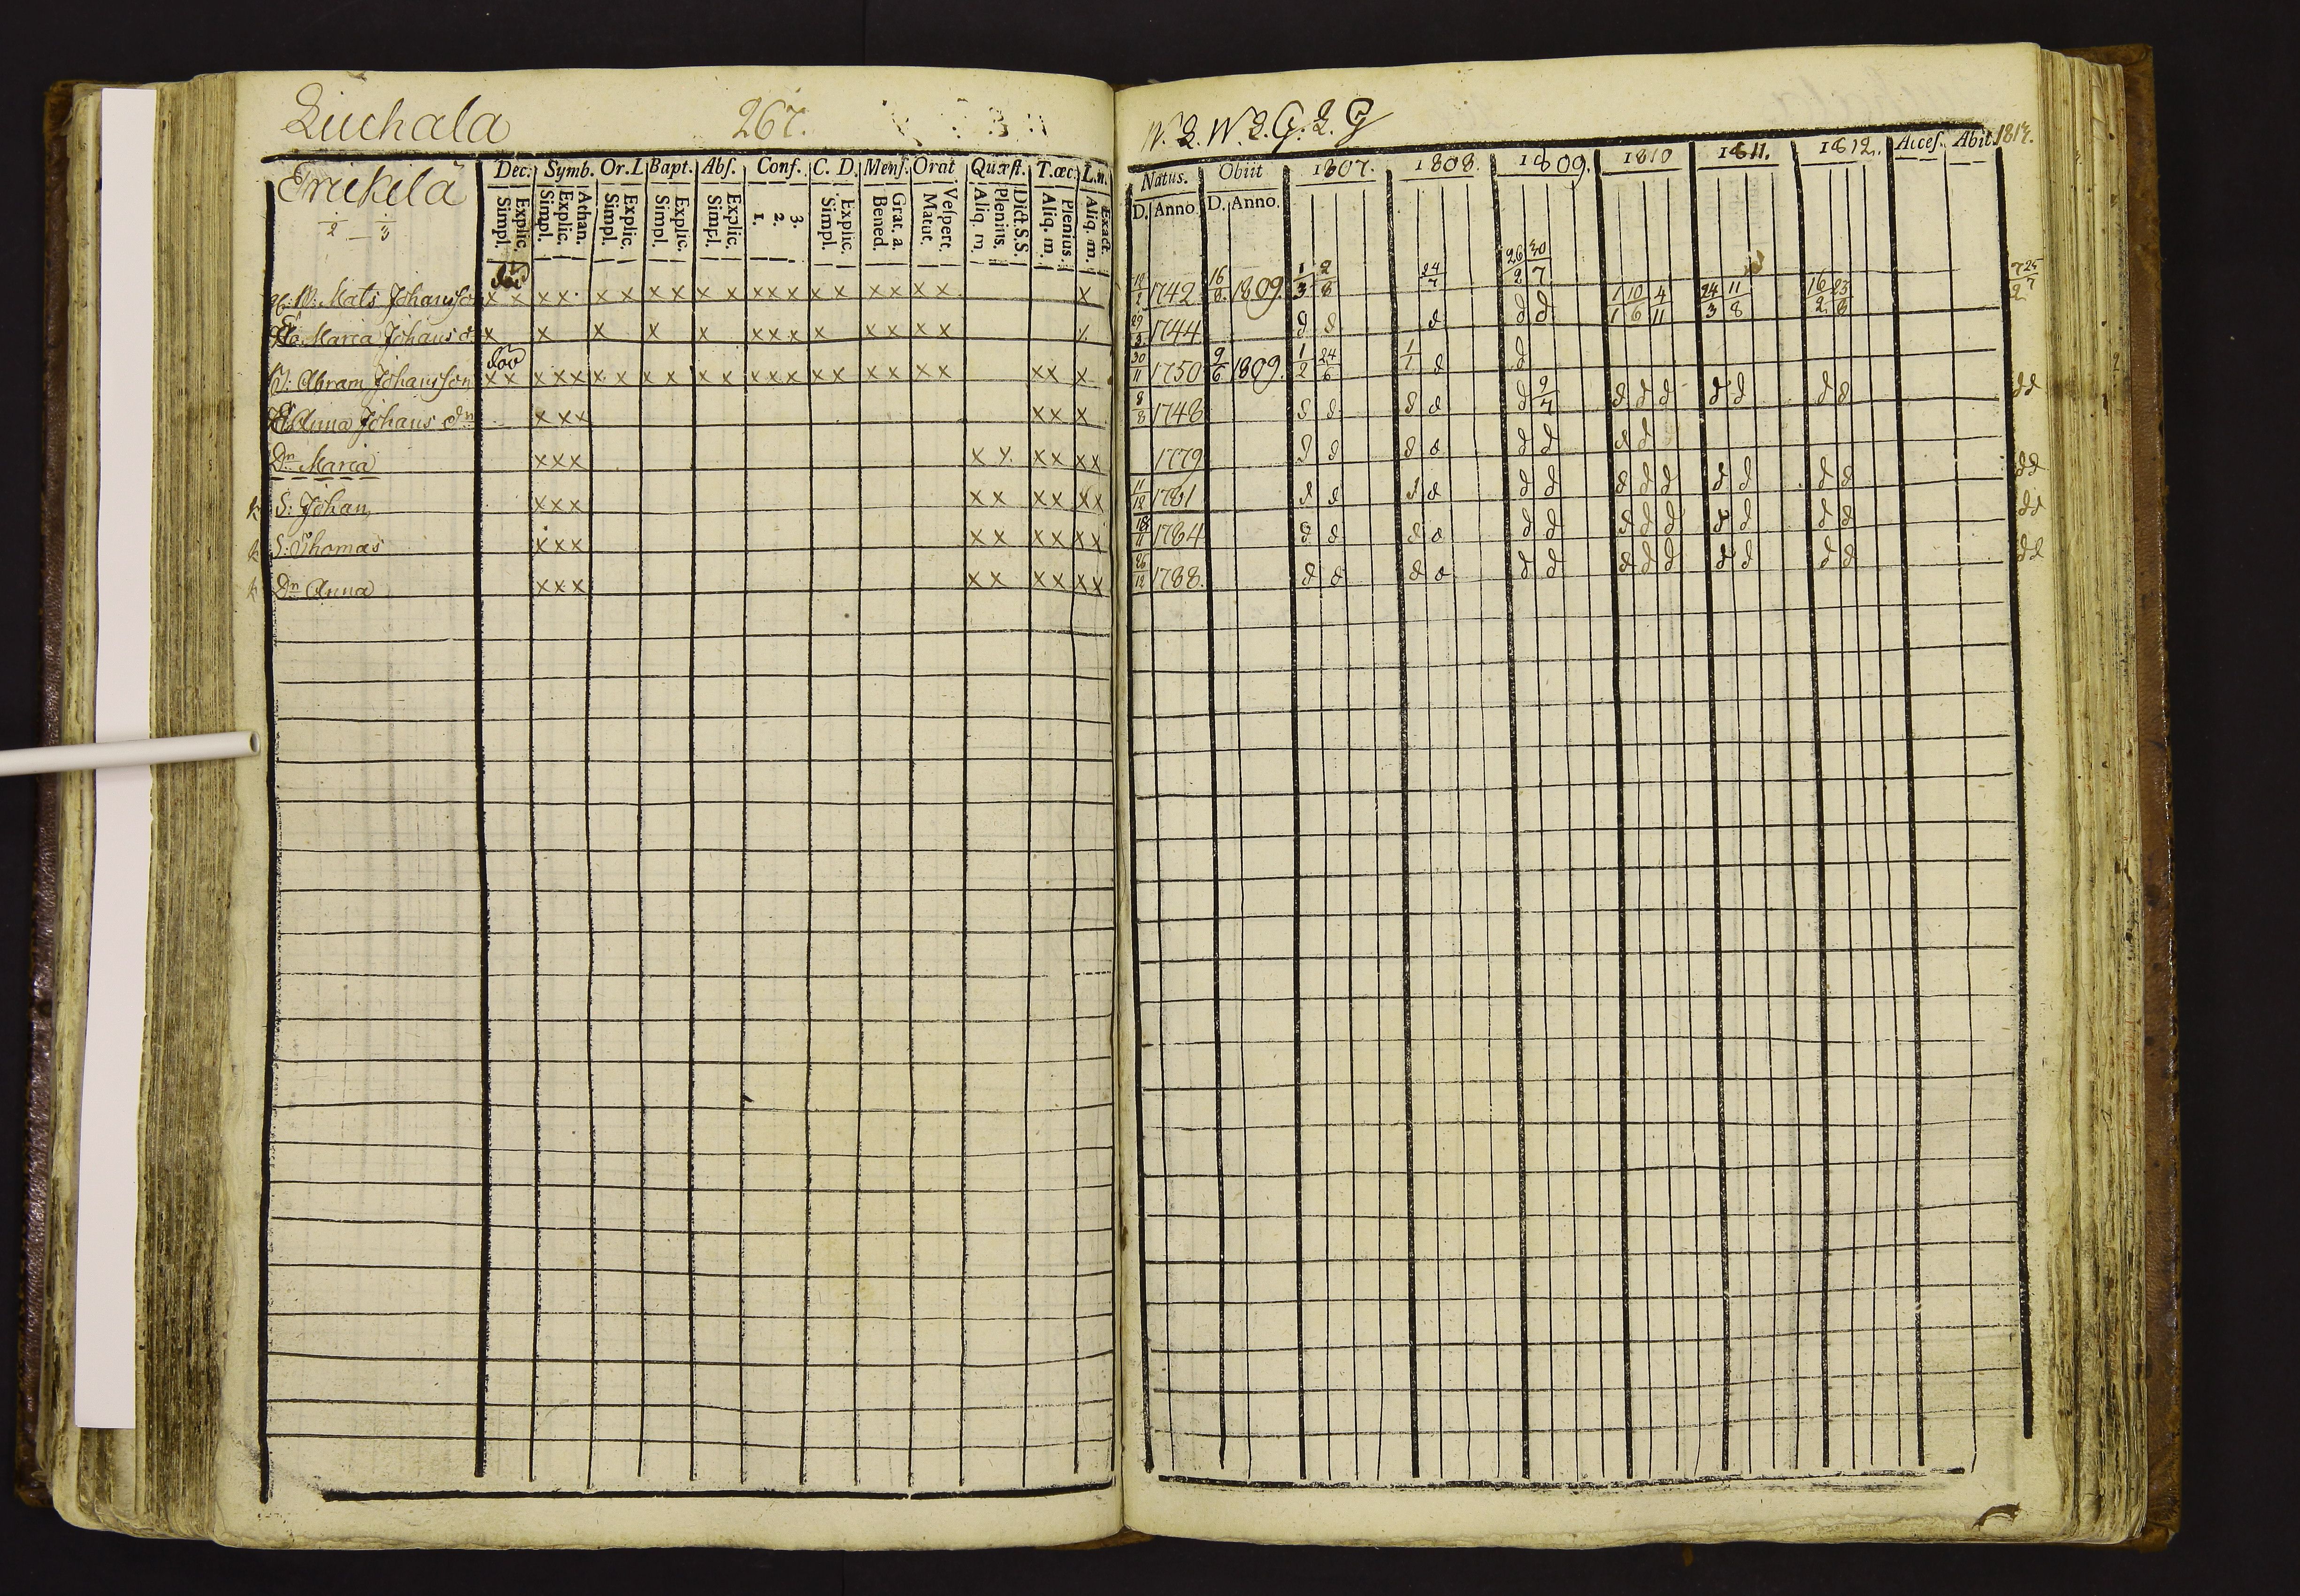 Liuhala 267.
Erickilä
2 — 3
Dec. Symb. Or.L Bapt. Abſ. Conf. C. D. Menſ. Orat Quæſt. T.œc. L.n.
Explic. Simpl. Athan. Explic. Simpl. Explic. Simpl. Explic. Simpl. Explic. Simpl. 3. 2. 1. Explic. Simpl. Grat. a. Bened. Veſpert. Matut. Dict.S.S. Plenius. Aliq. m. Plenius. Aliq. m. Exact. Aliq. m.
Mats Johansson x x x x x x x x x x x x x x x x x x x x x
Maria Johans d. x x x x x x x x x x x x x x
död
Abram Johansson x x x x x x x x x x x x x x x x x x x x x x x x
Anna Johans dr x x x x x x
Dr Maria x x x x x x x x x
k S: Johan x x x x x x x x x
k S: Thomas x x x x x x x x x
k Dr Anna x x x x x x x x x
N. L. W. L. G. L. G
Natus. Obiit 1807. 1808. 1809. 1810 1811. 1812. Acceſ. Abit. 1813.
D. Anno D. Anno.
1742 16/8 1809. 1/3 2/8 24/7 26/2 30/7 1/1 10/6 4/11 24/3 11/8 16/2 23/8
1744 d d d d d
30/11 1750 9/6 1809. 1/2 24/6 1/1 d d
8/8 1748 d d d d d 9/7 d d d d d d d d d
1779 d d d d d d d d
11/12 1781 d d d d d d d d d d d d d d d
18/11 1784 d d d d d d d d d d d d d d d
26/12 1788. d d d d d d d d d d d d d d d